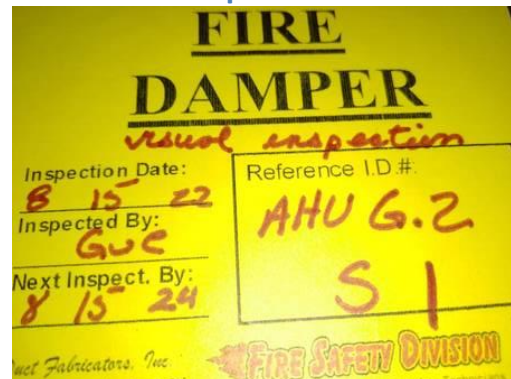 FIRE
DAMPER
visual inspection
Inspection Date:
8 15 22
Inspected By:
Gue
Next Inspect. By:
8 15 24
Reference I.D.#:
AHU G.2
S 1
Duct Fabricators, Inc.
FIRE SAFETY DIVISION